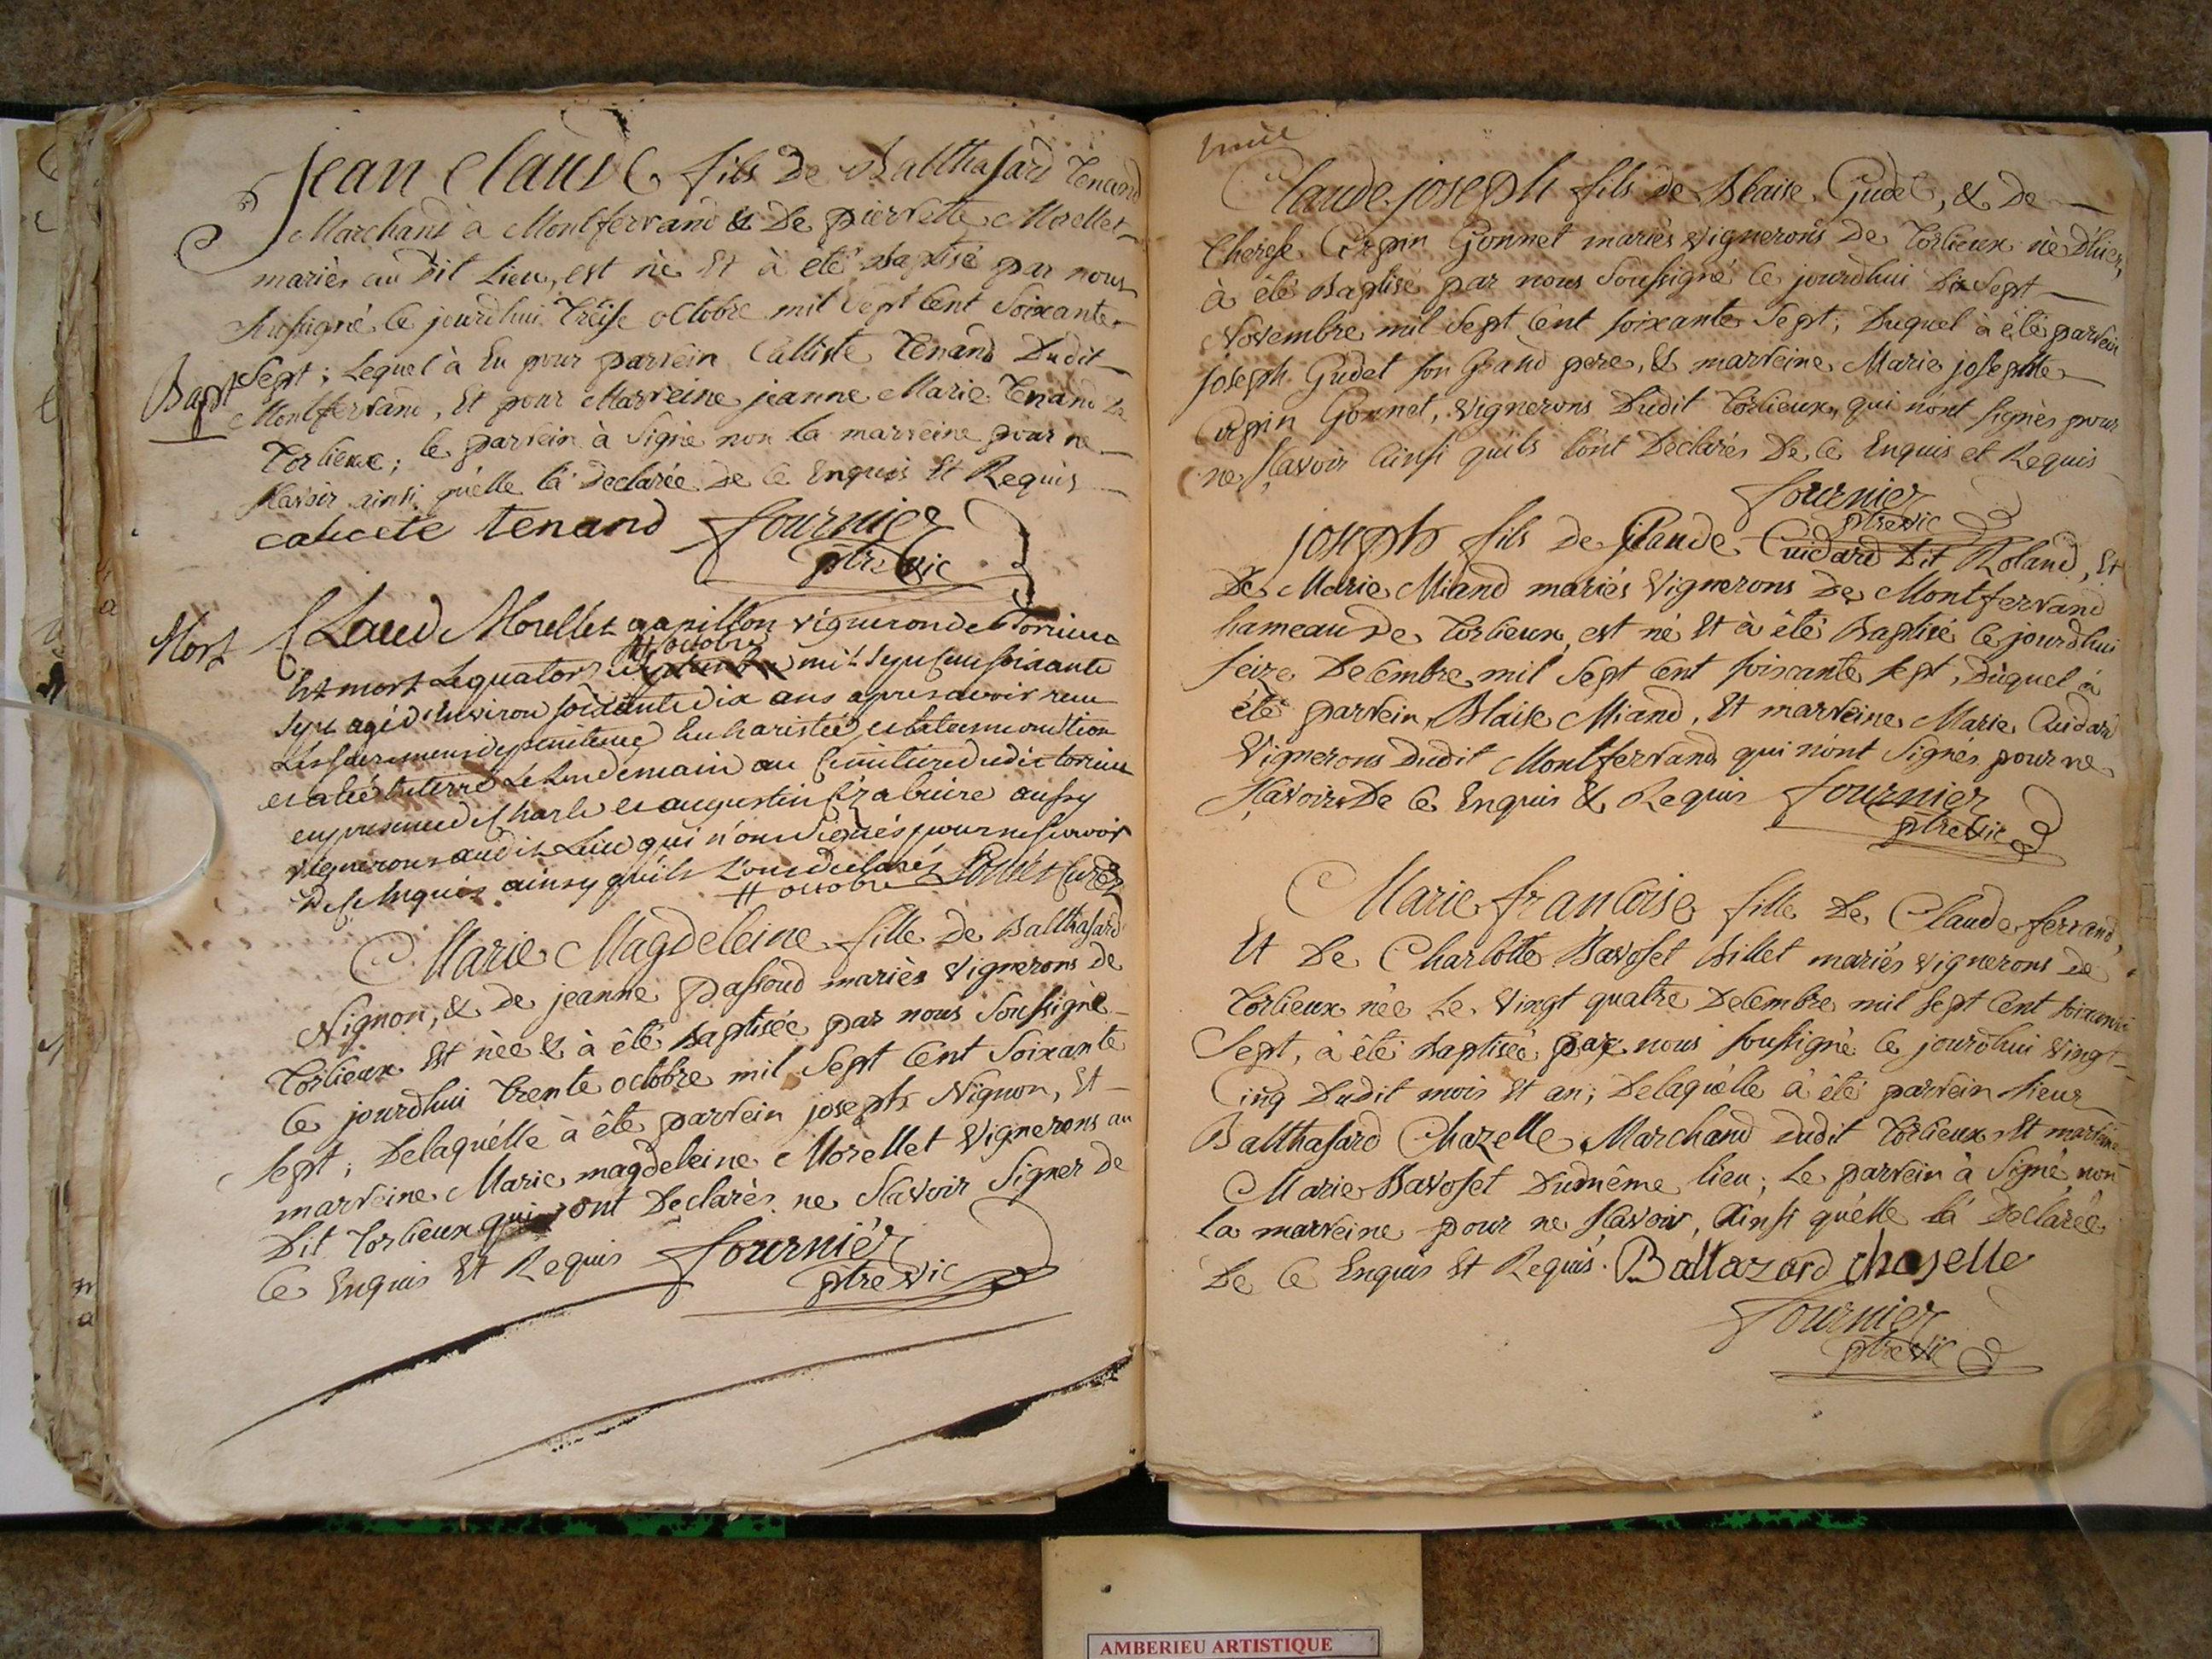 Jean Claude fils De Balthasard Tenand
Marchand à Montferrand & De pierrette Morellet
mariès au Dit Lieu, est nè Et à eté Baptisé par nous
Sousigné ce jourdhui Treise octobre mil Sept Cent Soixante
Bapt Sept ; Lequel à Eu pour parrein Calliste Tenand Dudit
Montferrand, Et pour Marreine jeanne Marie Tenand De
Torlieux ; le parrein à Signé non la marreine pour ne
Scavoir ainsi qu'elle la Declarée De Ce Enquis Et Requis
calicete tenand fournier
ptre vic
Mort Claud Morellet vigneron de Torrieux
# octobre
Est mort Le quatorze mil sept cens soixante
sept agé d'environ soixante dix ans apres avoir receu
Les sacremens de penitence Eucharistie et extremonction
et a été enterré Le Lendemain au cimitiere dudit torrieu
en presence de Charle et augustin aussy
vignerons audit Lieu qui n'ont signés pour ne scavoir
De ce Enquis ainsy qu'ils L'ont declarés curé
# octobre
Marie Magdeleine fille de Balthasard
Nignon, & de jeanne Passoud mariès vignerons de
Torlieux Est née & à êté baptisée par nous Soussigné
Ce jourdhui trente octobre mil Sept Cent Soixante
Sept ; Delaquélle à êté parrein joseph Nignon, Et
marreine Marie magdeleine Morellet Vignerons au
Dit Torlieux qui ont Declarès ne Scavoir Signer de
Ce Enquis Et Requis fournier
ptre vic
Claude joseph fils de Blaise Gudet, & De
Therese Crepin Gonnet mariés vignerons De Torlieux né D'hier,
à êlé Baptisé par nous Soussigné Ce jourdhui Dix Sept
Novembre mil Sept Cent soixante Sept ; Duquel à êté parrein
joseph Gudet son Grand pere, & marreine Marie josephte
Crepin Gonnet, Vignerons Dudit Torlieux, qui n'ont Signés pour
ne Scavoir Ainsi qu'ils l'ont Declarés De Ce Enquis et Requis
fournier
ptre vic
joseph fils De Claude Cuidard Dit Roland, Et
De Marie Miand mariés Vignerons De Montferrand
hameau De Torlieux, est né Et à êté Baptisé Ce jourdhui
Seize Decembre mil Sept Cent soixante sept, Duquel à
êté parrein Blaise Miand, Et marreine Marie Cuidard
Vignerons Dudit Montferrand qui n'ont Signés pour ne
Scavoir De Ce Enquis & Requis fournier
ptre vic
Marie francoise fille De Claude ferrand,
Et De Charlotte Savoset Billet mariés vignerons De
Torlieux née Le Vingt quatre Decembre mil Sept Cent soixante
Sept, à êté baptisée par nous soussigné Ce jourdhui Vingt
Cinq Dudit mois Et an ; Delaquélle à êté parrein Sieur
Balthasard Chazelle Marchand Dudit Torlieux Et marreine
Marie Savoset Du même lieu ; Le parrein à Signé non
La marreine pour ne Scavoir, Ainsi qu'élle la Declarée
De Ce Enquis Et Requis. Baltazard chaselle
fournier
ptre vic
AMBERIEU ARTISTIQUE